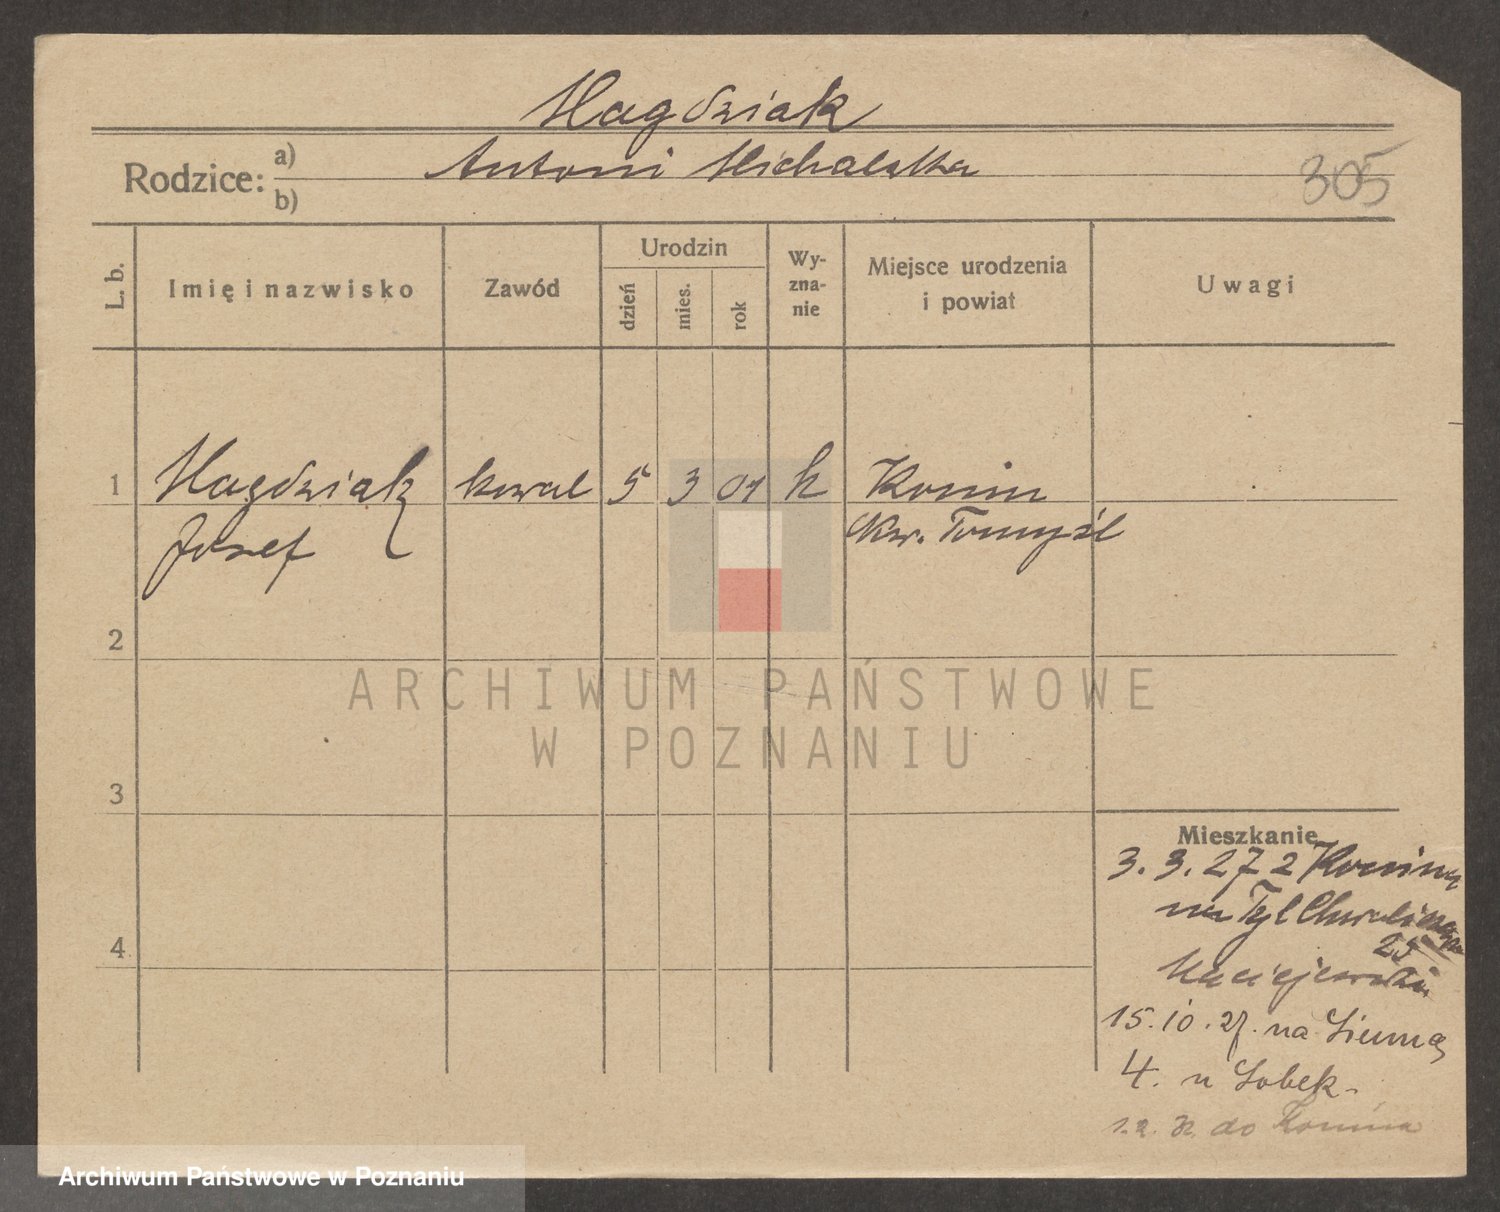 Magdziak
Rodzice: a) Antoni Michalska
b)
305
L. b.
Imię i nazwisko
Zawód
Urodzin
dzień
mies.
rok
Wy-
zna-
nie
Miejsce urodzenia
i powiat
Uwagi
1 Magdziak kowal 5 3 01 k Konin
Józef Nw. Tomyśl
2
3
4
Mieszkanie
3.3.27 z Konina
na Tyl Chwaliszewa
25
Maciejewski
15.10.27. na Zimną
4. u Sobek.
1.2. do Konina
ARCHIWUM PAŃSTWOWE
W POZNANIU
Archiwum Państwowe w Poznaniu